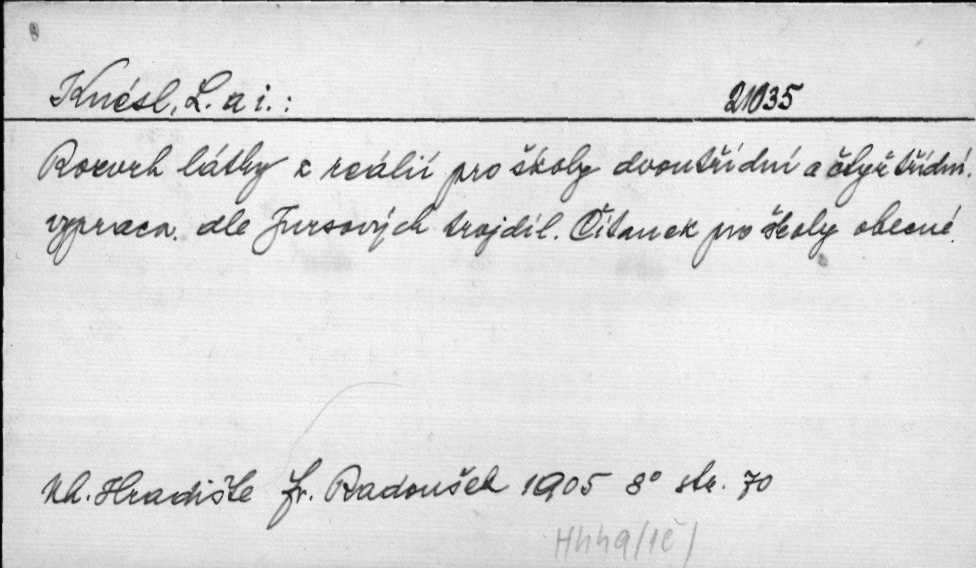 Knésl, L. a i.: 21035
Rozvrh látky z reálií pro školy dvoutřídní a čtyřtřídní.
vypraca. dle Jursových trojdíl. Čítanek pro školy obecné.
Uh. Hradiště Fr. Radoušek 1905 8° str. 70